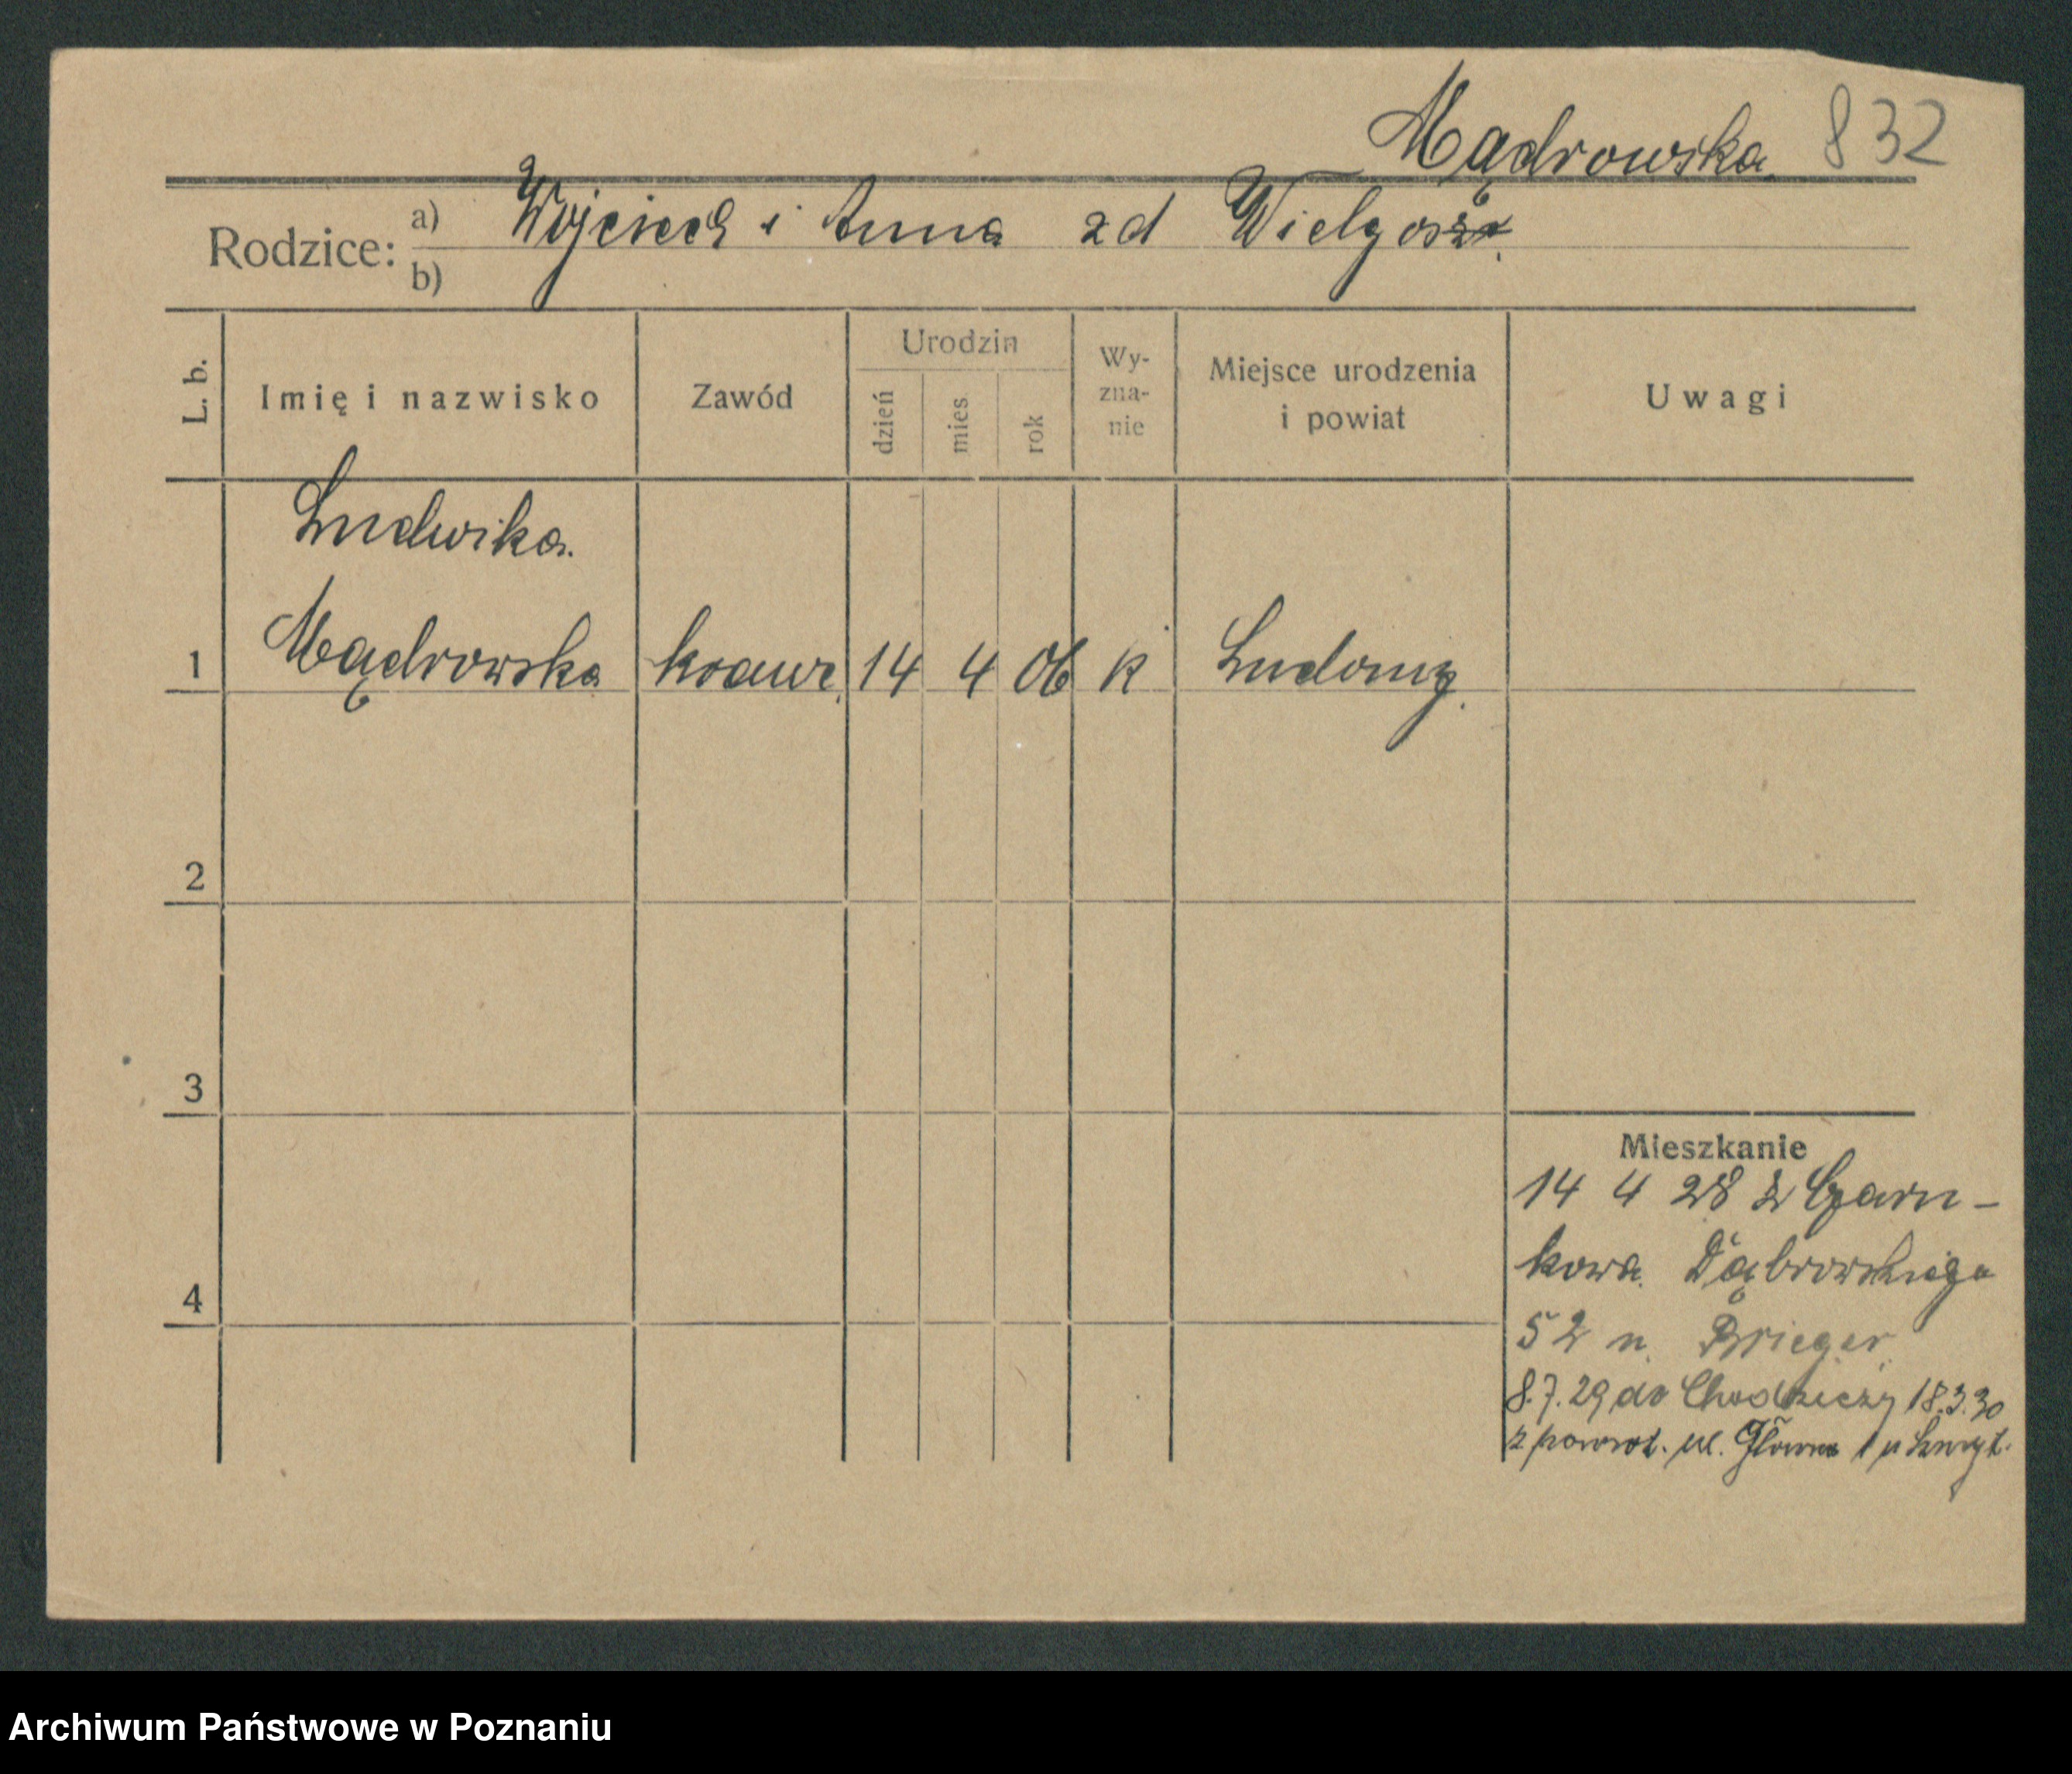 Mądrowska 832
Rodzice: a) Wojciech i Anna zd Wielgosz
b)
L. b. Imię i nazwisko Zawód Urodzin dzień mies. rok Wy-zna-nie Miejsce urodzenia i powiat Uwagi
Ludwika
1 Mądrowska krawc. 14 4 06 k Ludomy
2
3
Mieszkanie
14 4 28 z Czarn-
kowa Dąbrowskiego
4
52 u Brieger
8.7.29 do Chodzieży 18.3.30
z powrot. ul. Główna 1 u
Archiwum Państwowe w Poznaniu